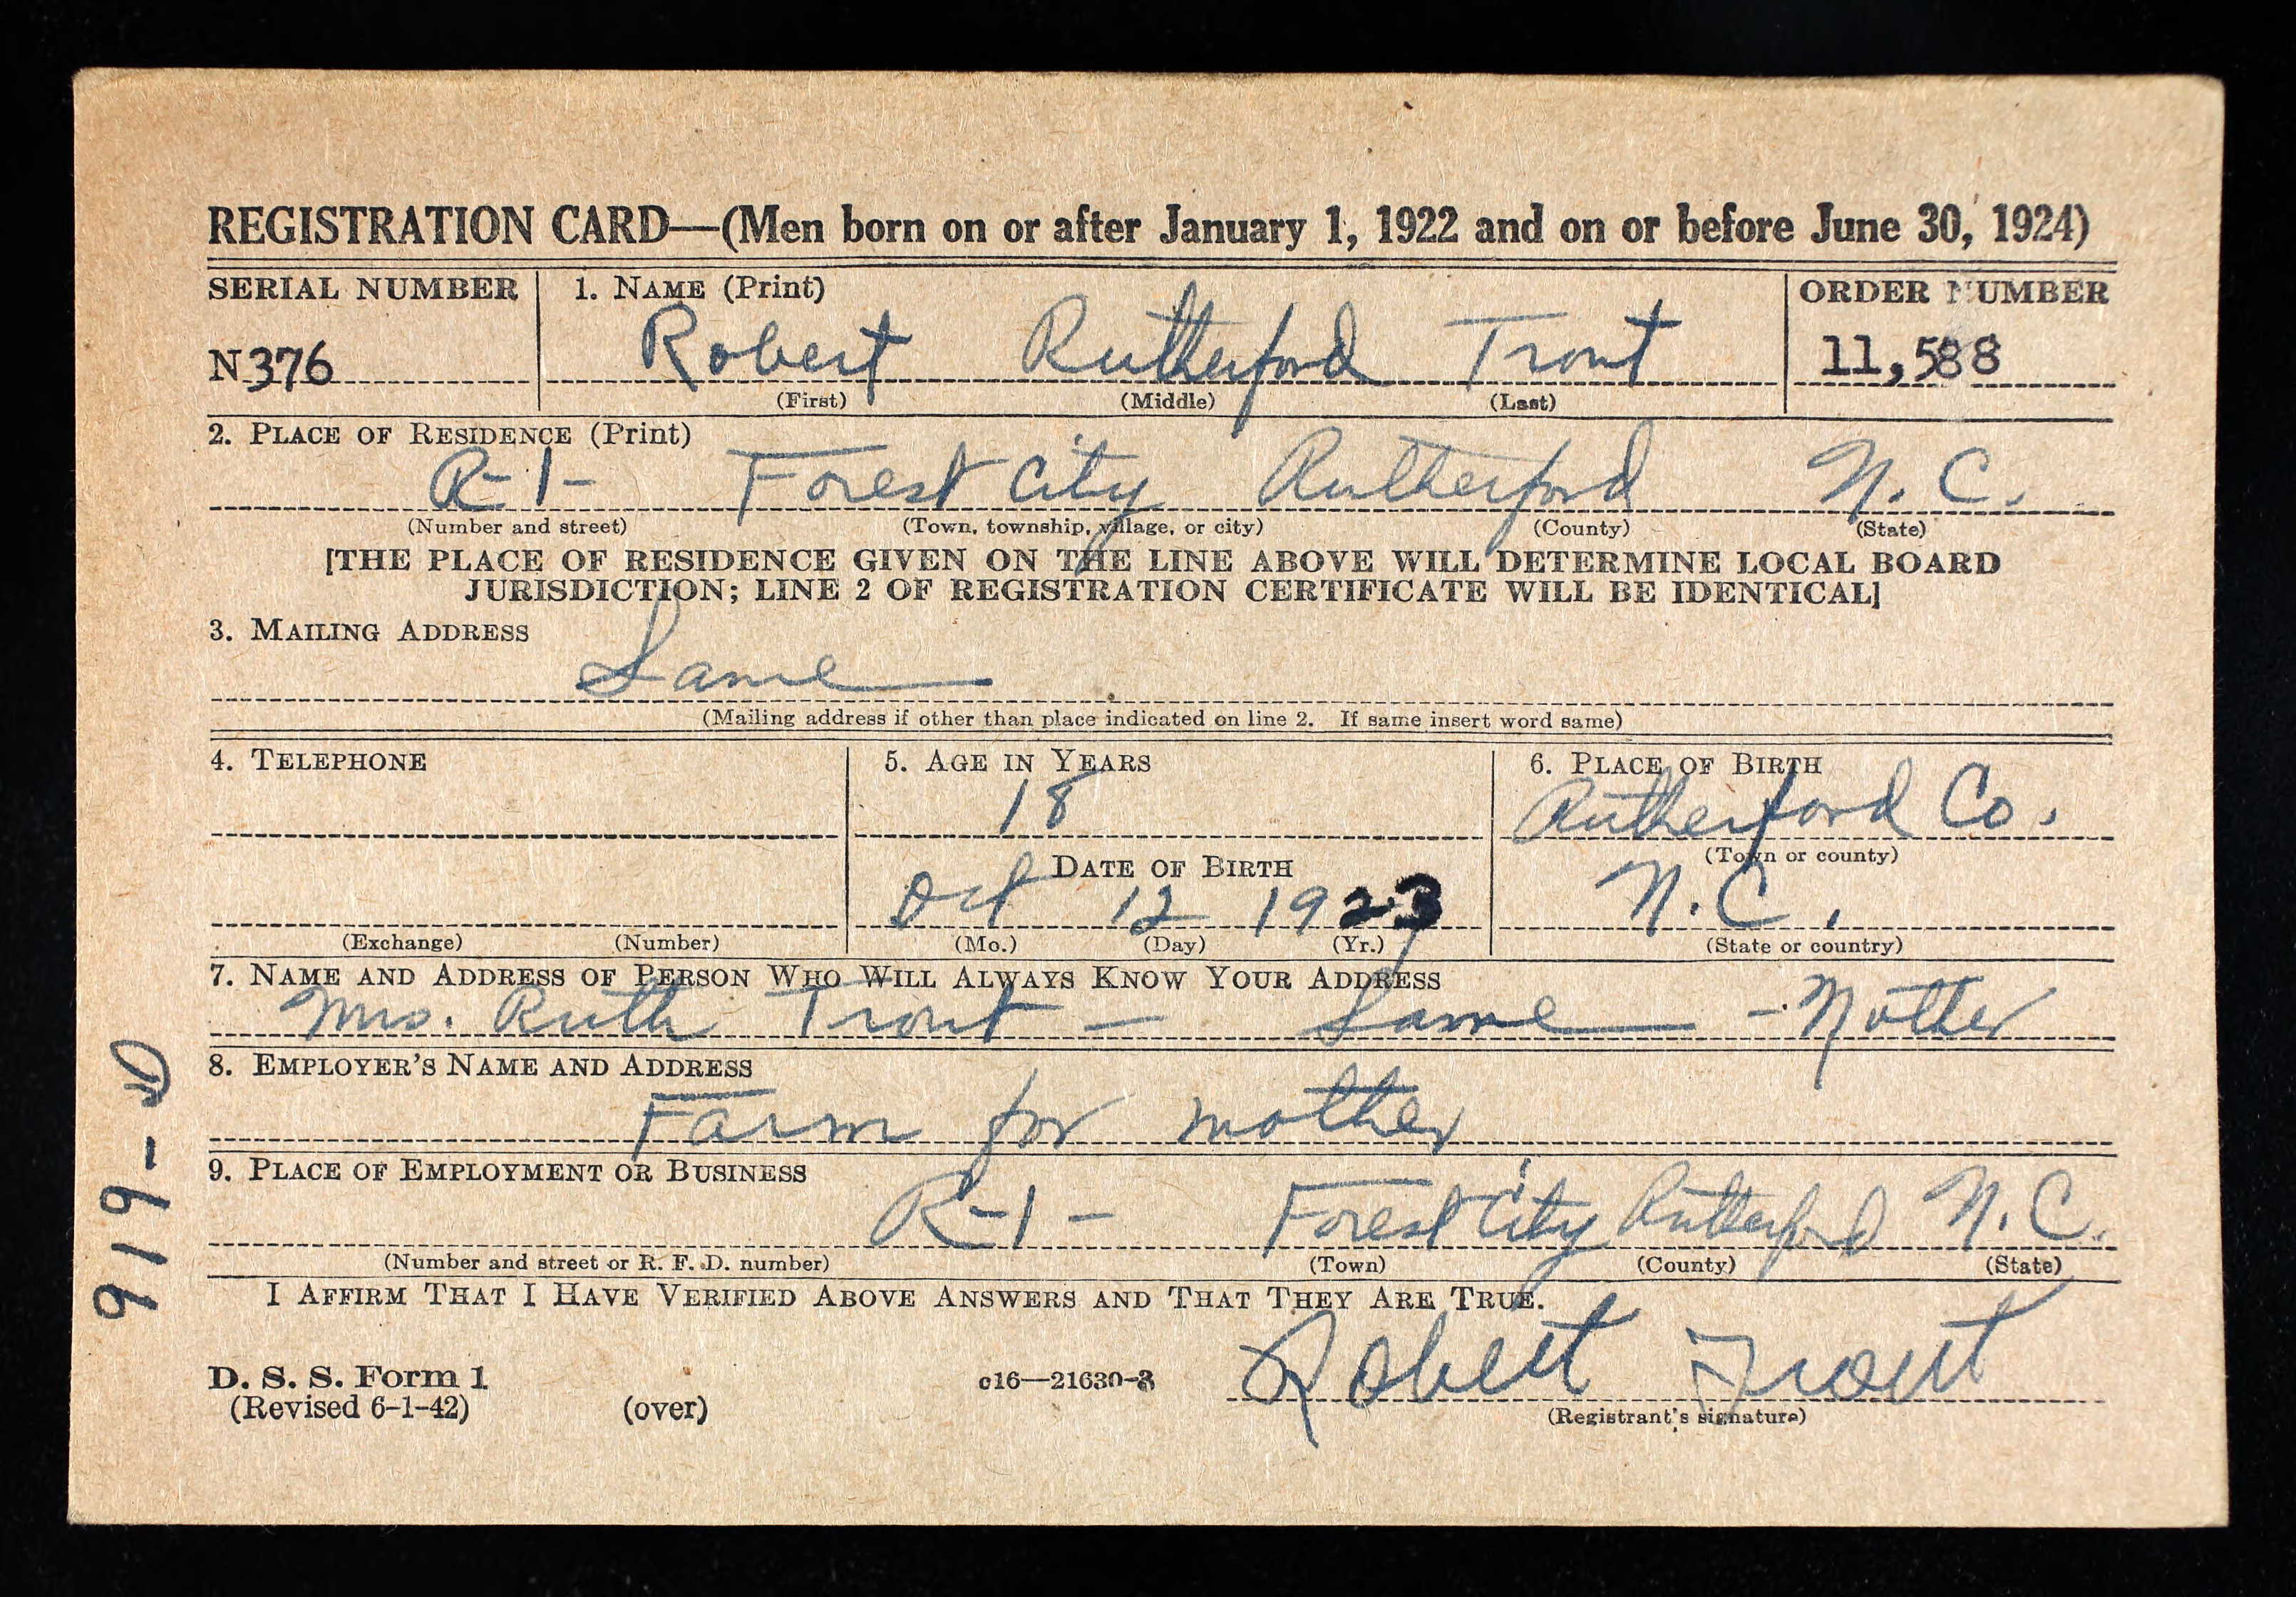 REGISTRATION CARD—(Men born on or after January 1, 1922 and on or before June 30, 1924)
SERIAL NUMBER 1. NAME (Print) ORDER NUMBER
N376 Robert Rutherford Trout 11,588
(First) (Middle) (Last)
2. PLACE OF RESIDENCE (Print)
R-1- Forest City Rutherford N. C.
(Number and street) (Town, township, village, or city) (County) (State)
[THE PLACE OF RESIDENCE GIVEN ON THE LINE ABOVE WILL DETERMINE LOCAL BOARD
JURISDICTION; LINE 2 OF REGISTRATION CERTIFICATE WILL BE IDENTICAL]
3. MAILING ADDRESS
Same
(Mailing address if other than place indicated on line 2. If same insert word same)
4. TELEPHONE 5. AGE IN YEARS 6. PLACE OF BIRTH
18 Rutherford Co.
DATE OF BIRTH (Town or county)
Oct 12 1923 N.C.
(Exchange) (Number) (Mo.) (Day) (Yr.) (State or country)
7. NAME AND ADDRESS OF PERSON WHO WILL ALWAYS KNOW YOUR ADDRESS
Mrs. Ruth Trout — Same - Mother
8. EMPLOYER'S NAME AND ADDRESS
Farm for mother
9. PLACE OF EMPLOYMENT OR BUSINESS
R-1- Forest City Rutherford N. C.
(Number and street or R. F. D. number) (Town) (County) (State)
I AFFIRM THAT I HAVE VERIFIED ABOVE ANSWERS AND THAT THEY ARE TRUE.
D. S. S. Form 1 c16—21630-3 Robert Trout
(Revised 6-1-42) (over) (Registrant's signature)
919-D